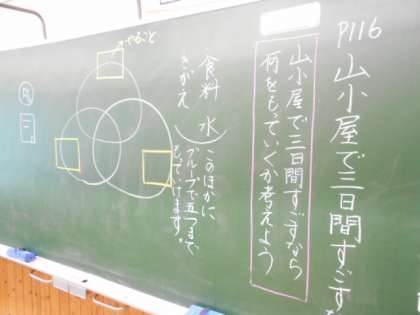 P116
山小屋で三日間すごすな
山小屋で三日間すごすなら
何をもっていくか考えよう
食料 水
きがえ
このほかに
グループで五つまで
もっていけます。
やること